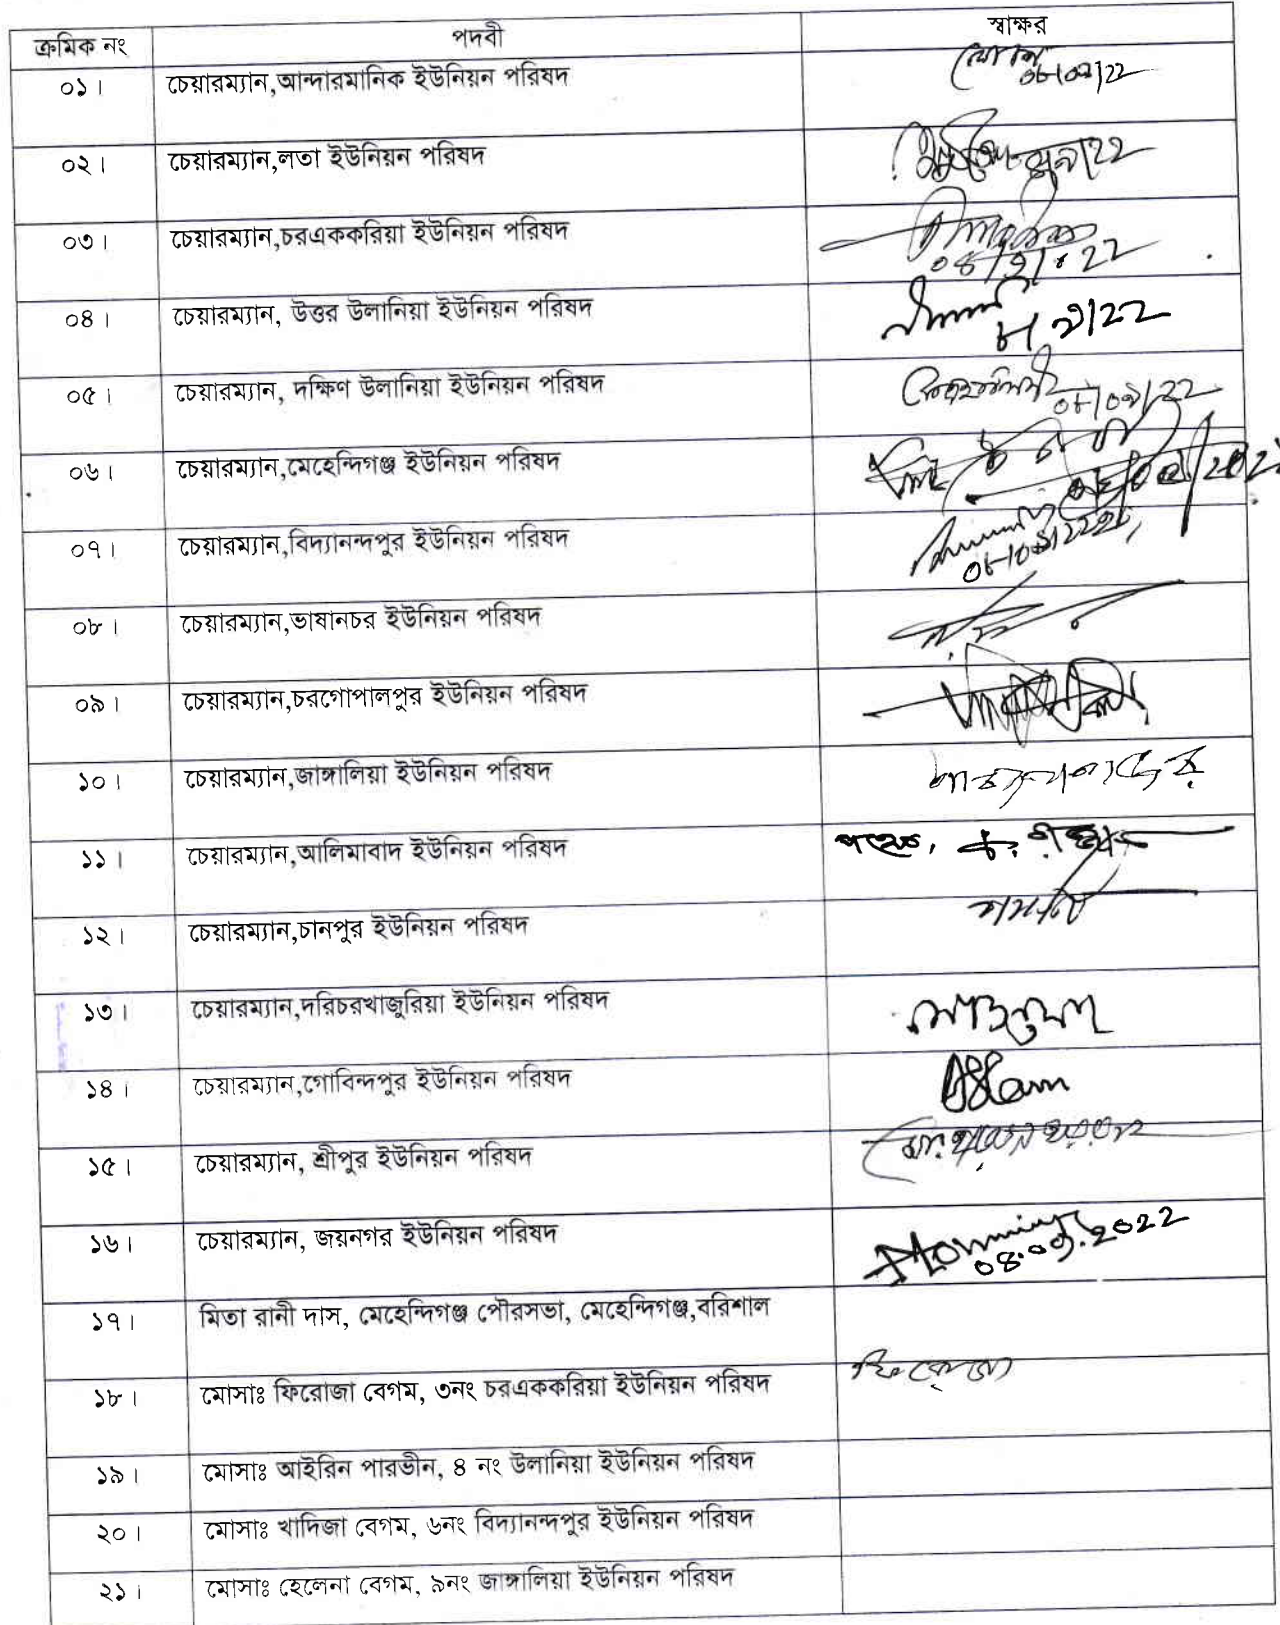 ক্রমিক নং পদবী স্বাক্ষর
০১। চেয়ারম্যান,আন্দারমানিক ইউনিয়ন পরিষদ ০৮/০৯/২২
০২। চেয়ারম্যান,লতা ইউনিয়ন পরিষদ
০৩। চেয়ারম্যান,চরএককরিয়া ইউনিয়ন পরিষদ
০৪। চেয়ারম্যান, উত্তর উলানিয়া ইউনিয়ন পরিষদ ৮/৯/২২
০৫। চেয়ারম্যান, দক্ষিণ উলানিয়া ইউনিয়ন পরিষদ ০৮/০৯/২২
০৬। চেয়ারম্যান,মেহেন্দিগঞ্জ ইউনিয়ন পরিষদ
০৭। চেয়ারম্যান,বিদ্যানন্দপুর ইউনিয়ন পরিষদ
০৮। চেয়ারম্যান,ভাষানচর ইউনিয়ন পরিষদ
০৯। চেয়ারম্যান,চরগোপালপুর ইউনিয়ন পরিষদ
১০। চেয়ারম্যান,জাঙ্গালিয়া ইউনিয়ন পরিষদ
১১। চেয়ারম্যান,আলিমাবাদ ইউনিয়ন পরিষদ
১২। চেয়ারম্যান,চানপুর ইউনিয়ন পরিষদ
১৩। চেয়ারম্যান,দরিচরখাজুরিয়া ইউনিয়ন পরিষদ
১৪। চেয়ারম্যান,গোবিন্দপুর ইউনিয়ন পরিষদ
১৫। চেয়ারম্যান, শ্রীপুর ইউনিয়ন পরিষদ
১৬। চেয়ারম্যান, জয়নগর ইউনিয়ন পরিষদ 08.09.2022
১৭। মিতা রানী দাস, মেহেন্দিগঞ্জ পৌরসভা, মেহেন্দিগঞ্জ,বরিশাল
১৮। মোসাঃ ফিরোজা বেগম, ৩নং চরএককরিয়া ইউনিয়ন পরিষদ ফিরোজা
১৯। মোসাঃ আইরিন পারভীন, ৪ নং উলানিয়া ইউনিয়ন পরিষদ
২০। মোসাঃ খাদিজা বেগম, ৬নং বিদ্যানন্দপুর ইউনিয়ন পরিষদ
২১। মোসাঃ হেলেনা বেগম, ৯নং জাঙ্গালিয়া ইউনিয়ন পরিষদ